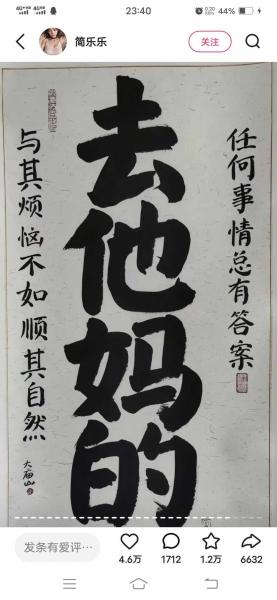 23:40
44%
简乐乐
关注
任何事情总有答案
去他妈的
与其烦恼不如顺其自然
大庙山
发条有爱评…
4.6万
1712
1.2万
6632